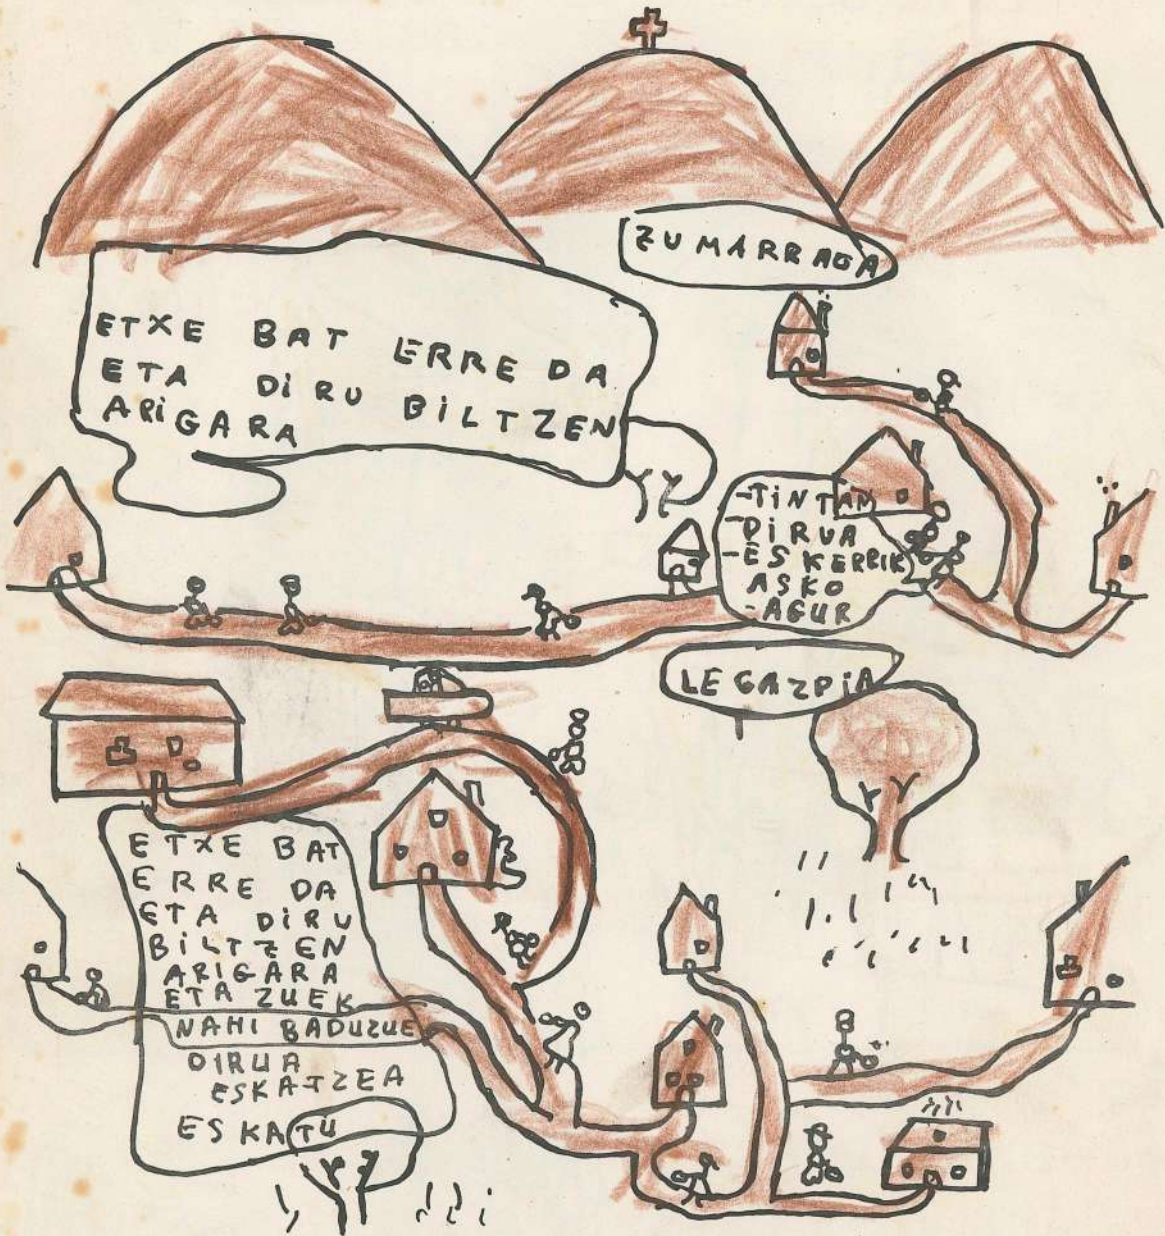 ZUMARRAGA
ETXE BAT ERRE DA
ETA DiRU BiLTZEN
ARiGARA
-TiNTAN
-DiRUA
-ESKERRiK
ASKO
-AGUR
LEGAZPiA
ETXE BAT
ERRE DA
ETA DiRU
BiLTZEN
ARiGARA
ETA ZUEK
NAHI BADUZUE
DIRUA
ESKATZEA
ESKATU